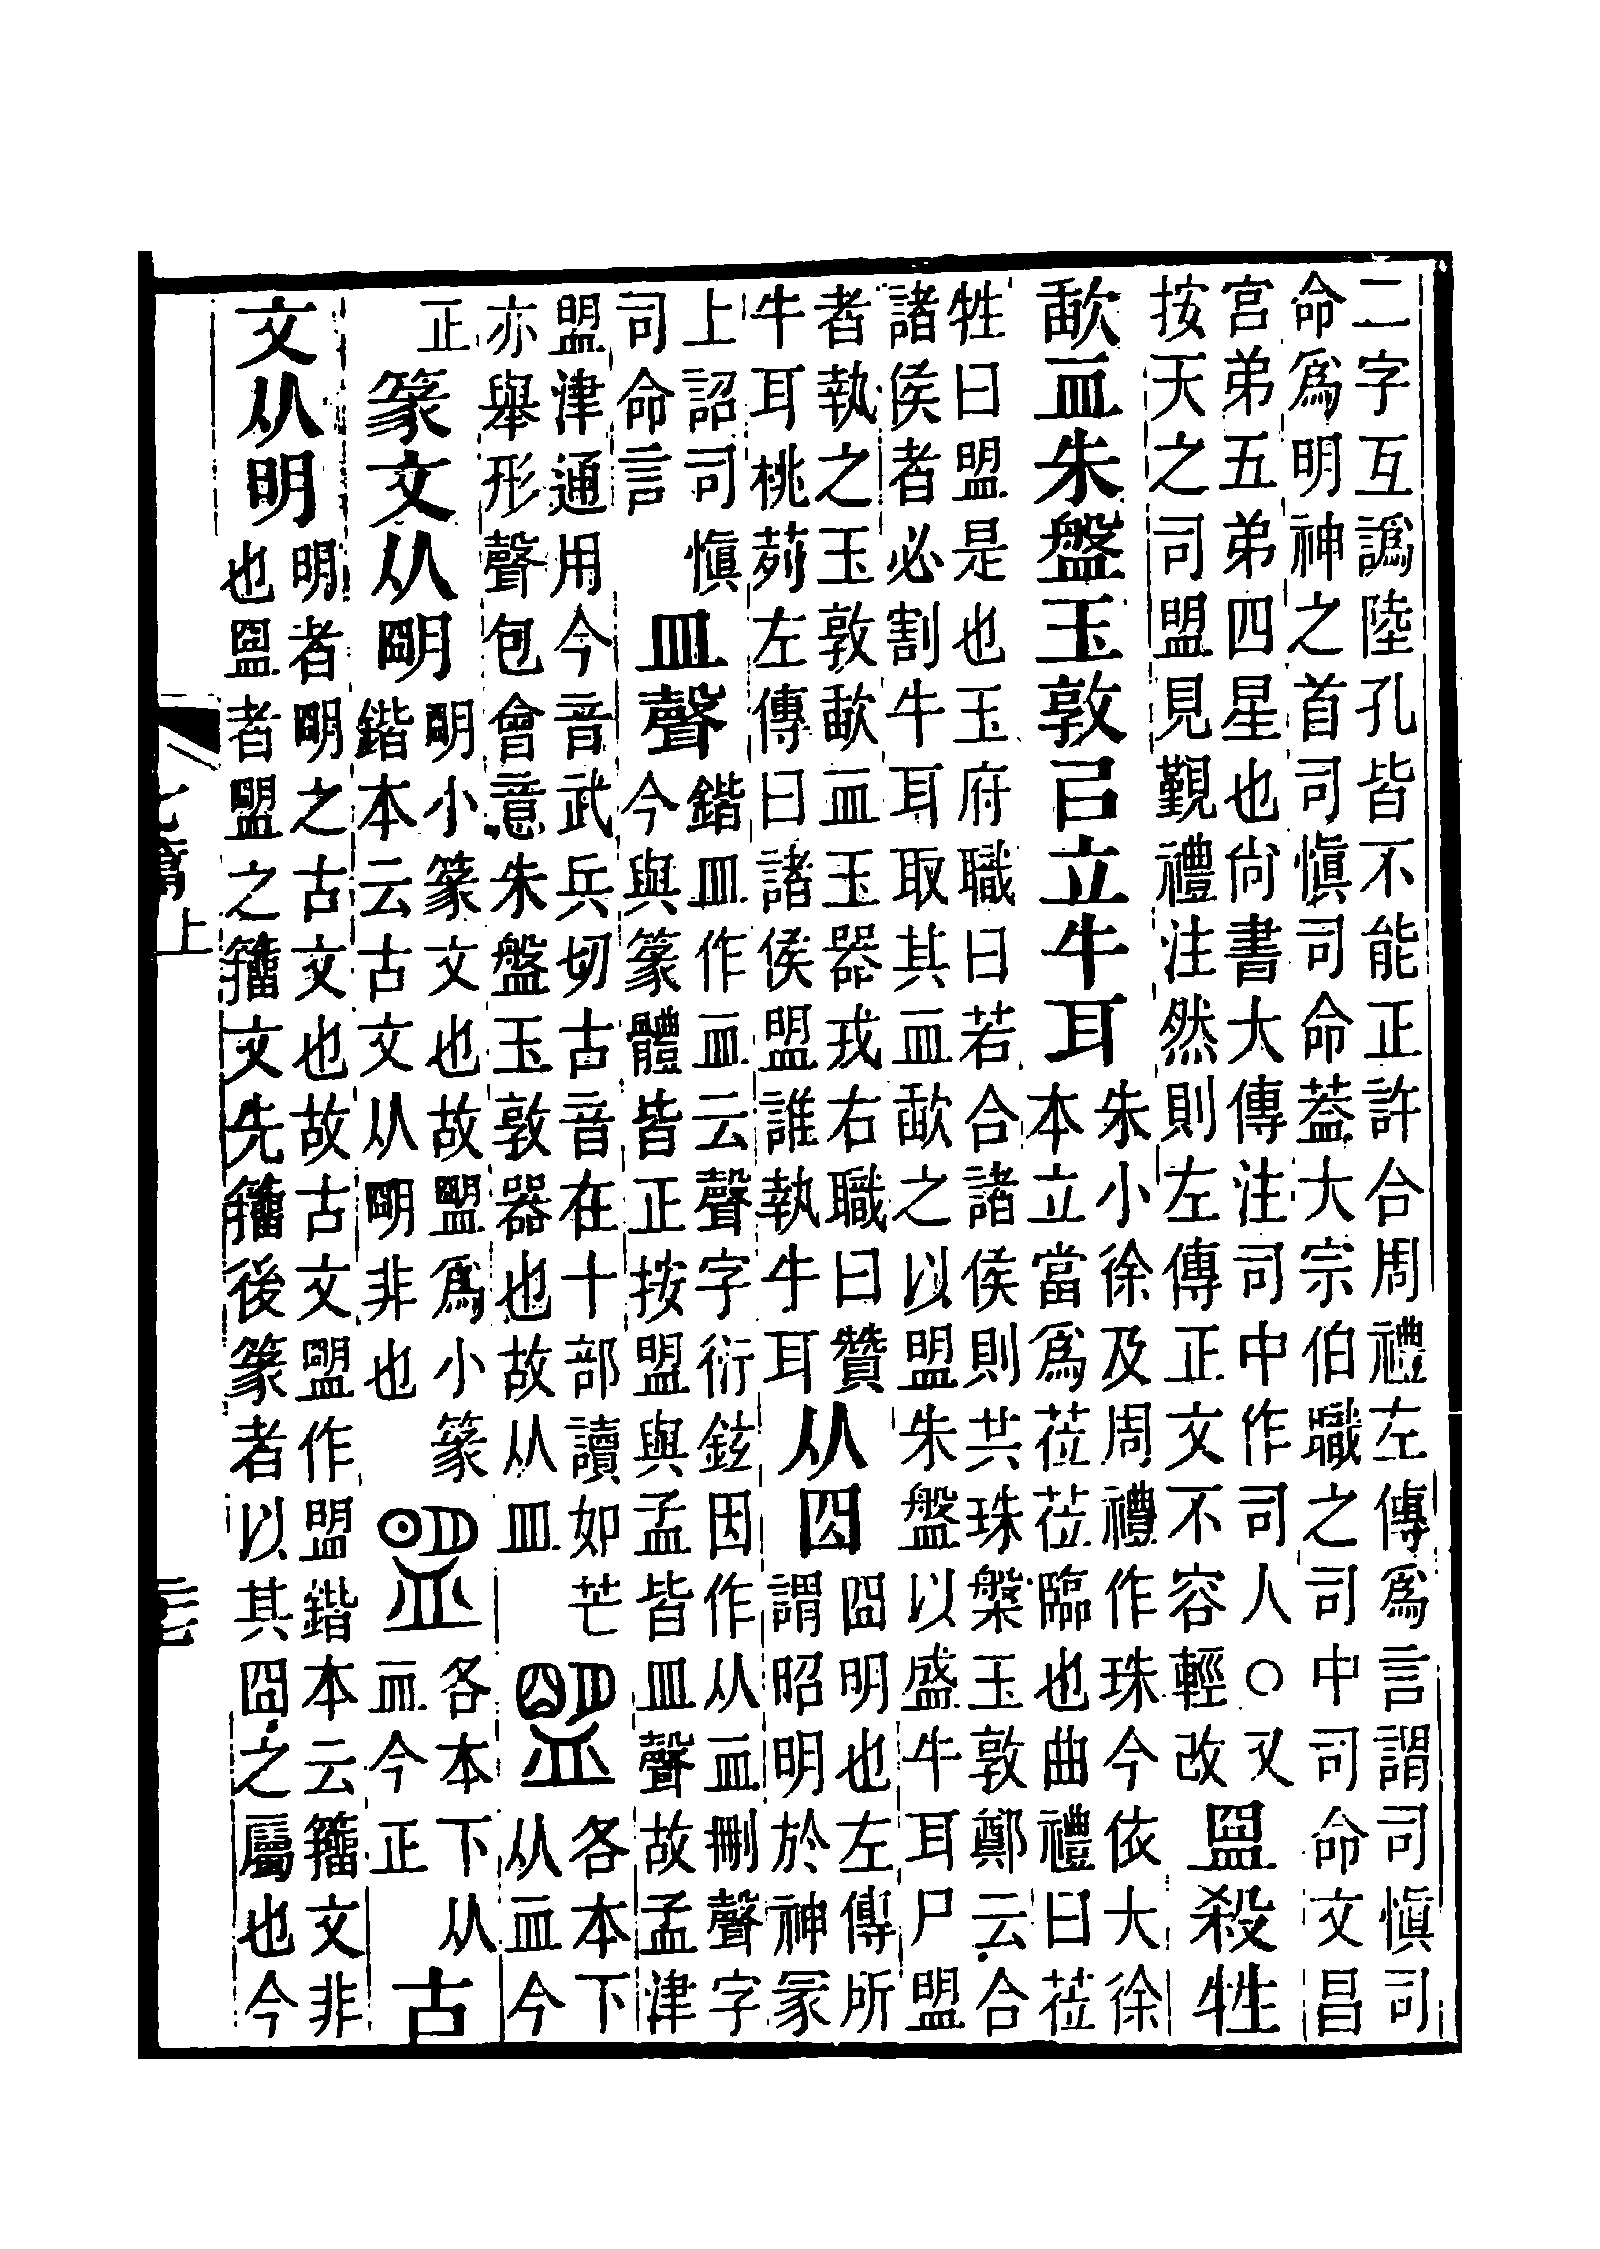 二字互譌陸孔皆不能正許合周禮左傳爲言謂司愼司
命爲明神之首司愼司命葢大宗伯職之司中司命文昌
宮弟五弟四星也尙書大傳注司中作司人○又
按天之司盟見覲禮注然則左傳正文不容輕改
𥁰殺牲
歃血朱盤玉敦㠯立牛耳
朱小徐及周禮作珠今依大徐
本立當爲莅莅臨也曲禮曰莅
牲曰盟是也玉府職曰若合諸侯則共珠槃玉敦鄭云合
諸侯者必割牛耳取其血歃之以盟朱盤以盛牛耳尸盟
者執之玉敦歃血玉器戎右職曰贊
牛耳桃茢左傳曰諸侯盟誰執牛耳
从囧
囧明也左傳所
謂昭明於神冡
上詔司愼
司命言
皿聲
鍇皿作血云聲字衍鉉因作从血刪聲字
今與篆體皆正按盟與孟皆皿聲故孟津
盟津通用今音武兵切古音在十部讀如芒
亦舉形聲包會意朱盤玉敦器也故从皿
𥂗
各本下
从血今
正
篆文从朙
朙小篆文也故𥂗爲小篆
鍇本云古文从朙非也
盟
各本下从
血今正
古
文从明
明者朙之古文也故古文盟作盟鍇本云籒文非
也𥁰者𥂗之籒文先籒後篆者以其囧之屬也今
七篇上